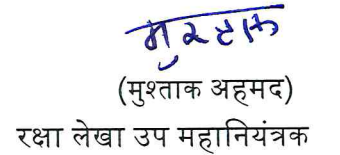 मुश्ताक
(मुश्ताक अहमद)
रक्षा लेखा उप महानियंत्रक